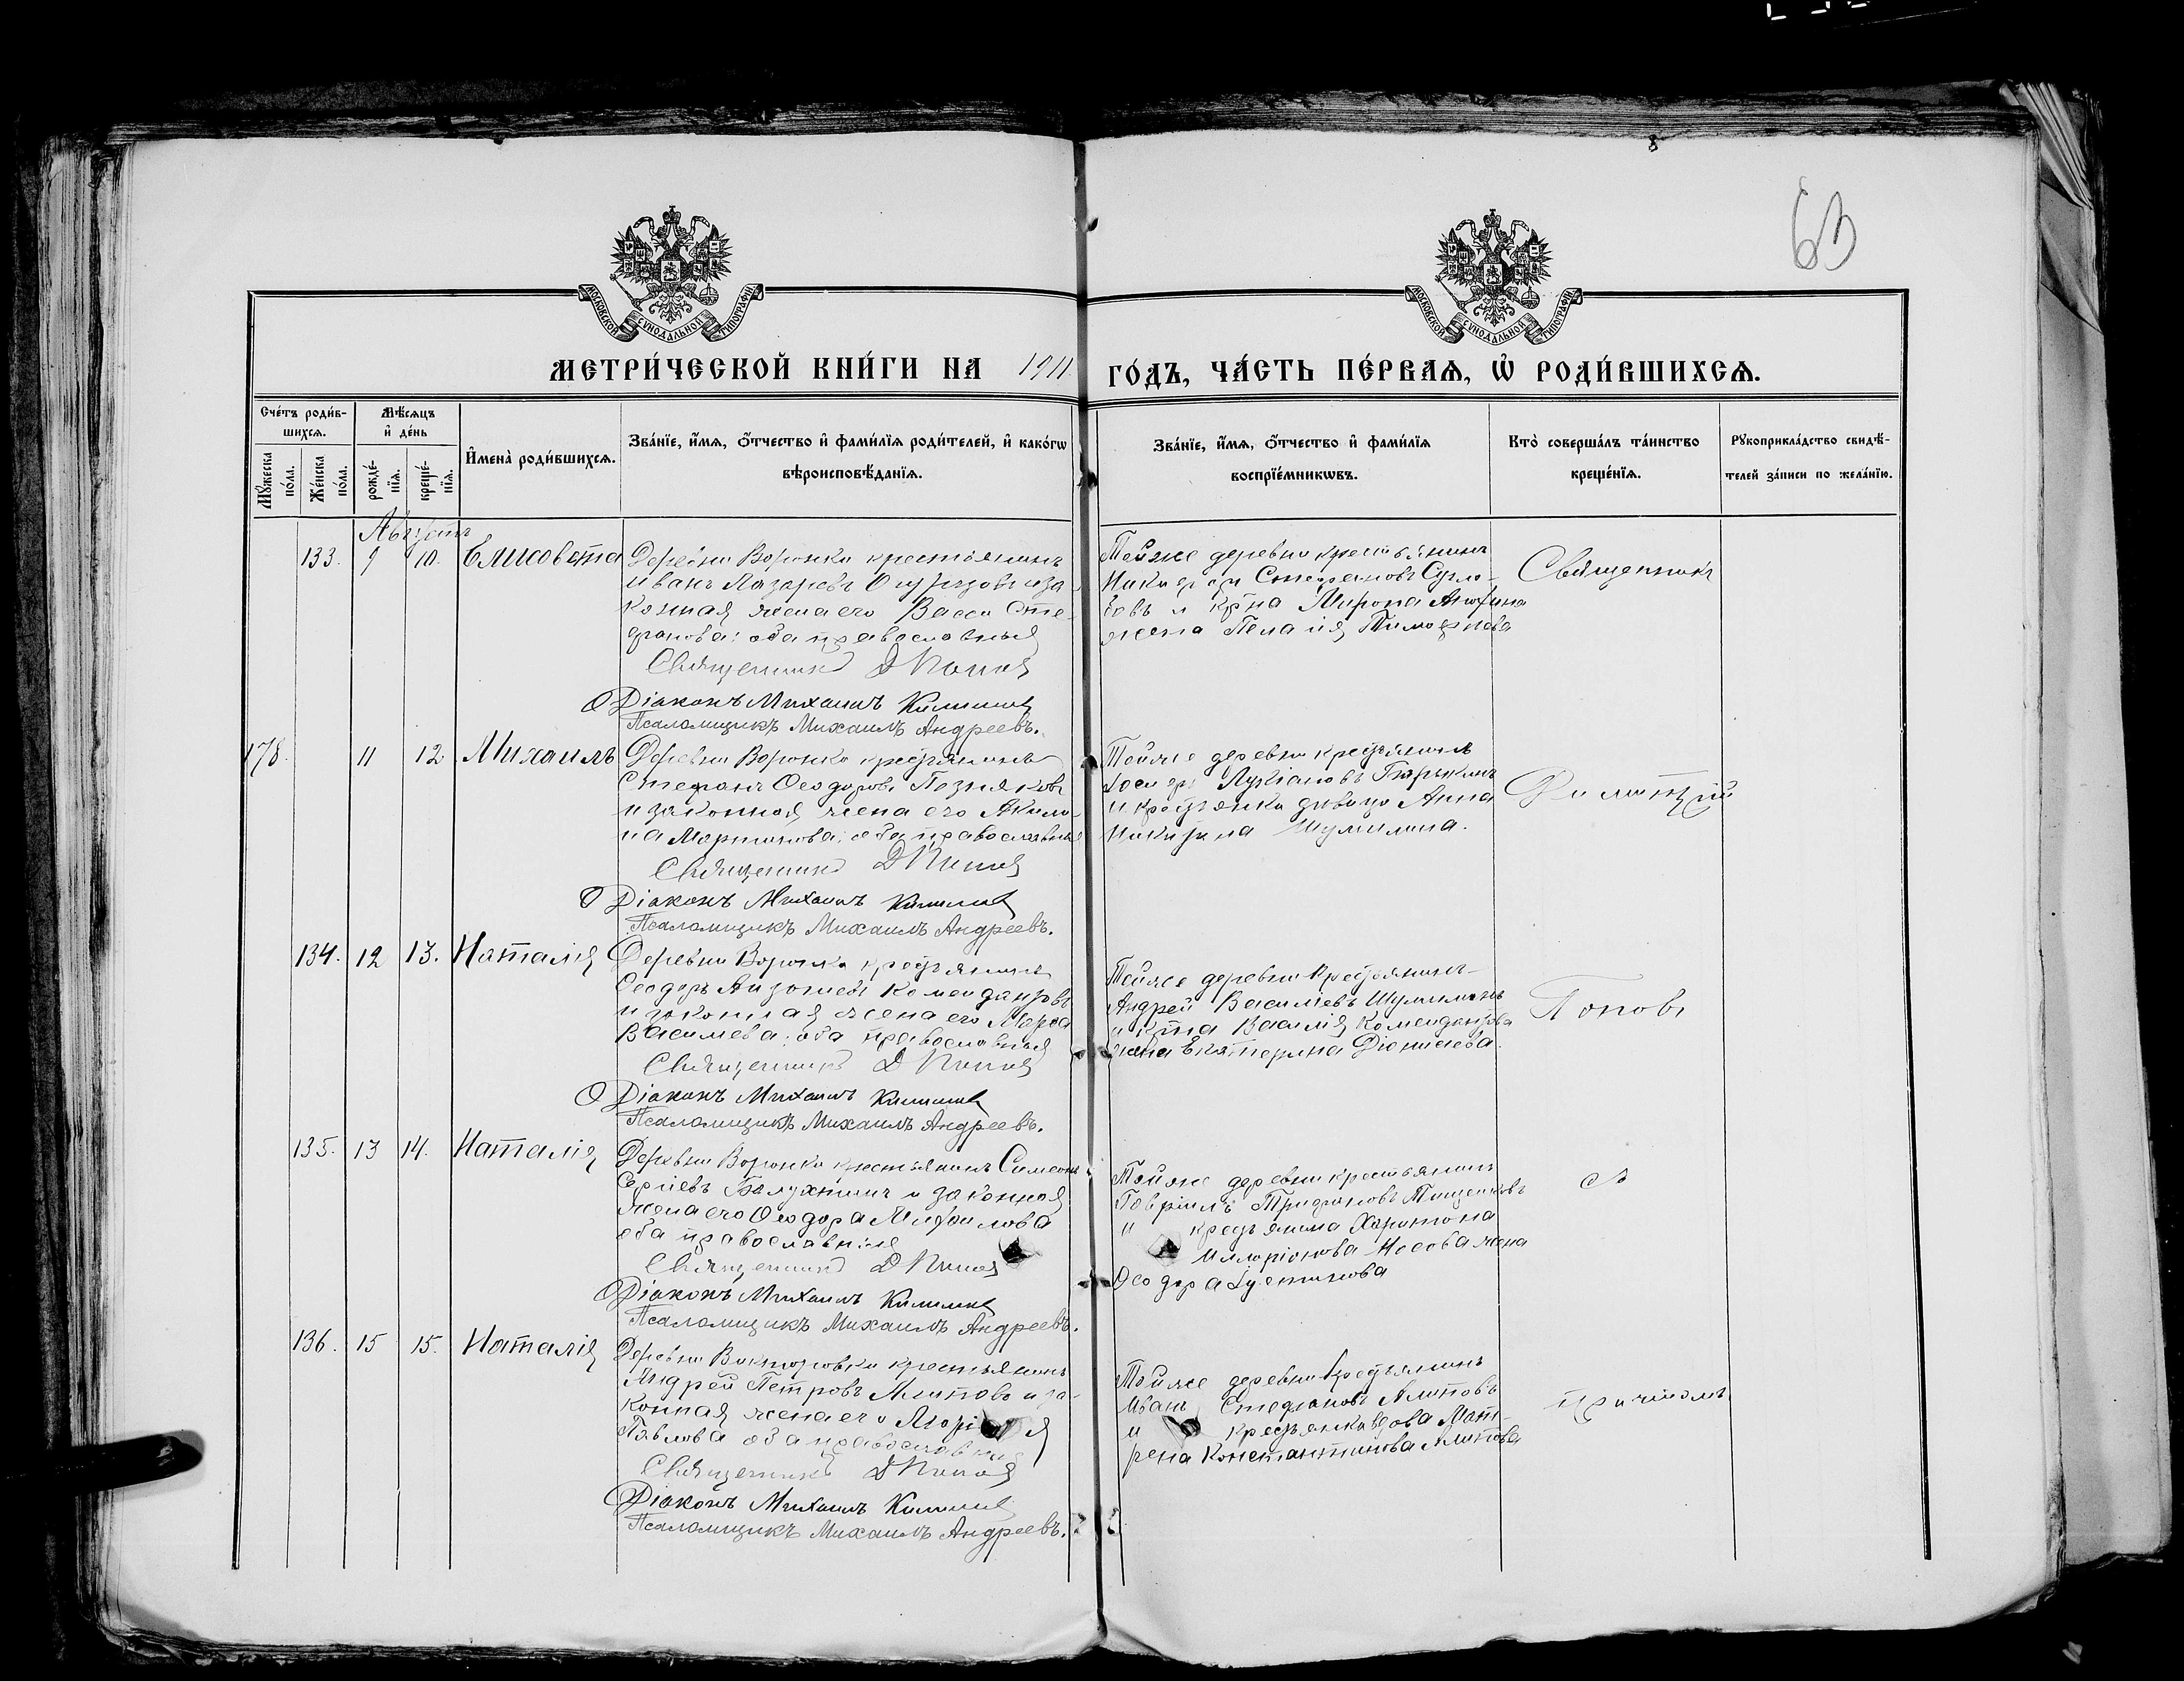 63
МОСКОВСКОЙ СѴНОДАЛЬНОЙ ТИПОГРАФІИ
МОСКОВСКОЙ СѴНОДАЛЬНОЙ ТИПОГРАФІИ
МЕТРИ́ЧЕСКОЙ КНИ́ГИ НА 1911 ГО́ДЪ, ЧА́СТЬ ПЕ́РВАѦ, Ѡ҆ РОДИ́ВШИХСѦ.
Сче́тъ роди́в-
шихсѧ.
Мꙋ́жеска по́ла.
Же́нска по́ла.
Мѣ́сѧцъ и҆ де́нь
рожде́-нїѧ.
креще́-нїѧ.
И҆мена̀ роди́вшихсѧ.
Зва́нїе, и҆́мѧ, ѻ҆́тчество и҆ фами́лїѧ роди́телей, и҆ како́гѡ
вѣроисповѣ́данїѧ.
Зва́нїе, и҆́мѧ, ѻ҆́тчество и҆ фами́лїѧ
воспрїе́мникѡвъ.
Кто̀ соверша́лъ та́инство
креще́нїѧ.
Рꙋкоприкла́дство свидѣ́-
телей за́писи по жела́нїю.
Августъ
133. 9 10. Елисавета
Деревни Воронки крестьянинъ
Иванъ Лазаревъ и за-
конная жена его Васса Сте-
фанова: оба православныя
Священникъ Д Попов
Діаконъ Михаилъ
Псаломщикъ Михаилъ Андреевъ.
Тойже деревни крестьянинъ
Стефановъ
и кр-на Мирона
жена Пелагія
Священникъ
178. 11 12 Михаилъ
Деревни Воронки крестьянинъ
Стефанъ Ѳеодоровъ Позняковъ
и законная жена его Акили-
на Мартинова: оба православныя
Священникъ Д Попов
Діаконъ Михаилъ
Псаломщикъ Михаилъ Андреевъ.
Тойже деревни крестьянинъ
Лукіановъ
и крестьянка девица Анна
Никитина Шумилина.
Димитрій
134. 12 13. Наталія
Деревни Воронки крестьянинъ
Ѳеодоръ Комендантовъ
и законная жена его Марѳа
Василиева: оба православныя
Священникъ Д Попов
Діаконъ Михаилъ
Псаломщикъ Михаилъ Андреевъ.
Тойже деревни крестьянинъ
Андрей Василіевъ Шумилинъ
и кр-на Василія Комендантова
жена Екатерина Діонисіева.
Поповъ
135. 13 14. Наталія
Деревни Воронки крестьянинъ Симеонъ
Сергіевъ Балухтинъ и законная
жена его Ѳеодора Михаилова
оба православныя
Священникъ Д Попов
Діаконъ Михаилъ
Псаломщикъ Михаилъ Андреевъ.
Тойже деревни крестьянинъ
Гавріилъ Трифоновъ Тищенковъ
и крестьянина Харитона
Илларіонова Носова жена
Ѳеодора Іустинова
съ
136. 15 15. Наталія
Деревни Викторовки крестьянинъ
Андрей Петровъ Алиповъ и за-
конная жена его
Павлова оба православныя
Священникъ Д Попов
Діаконъ Михаилъ
Псаломщикъ Михаилъ Андреевъ.
Тойже деревни крестьянинъ
Иванъ Стефановъ Алиповъ
и крестьянка вдова Мат-
рена Константинова Алипова
причтомъ